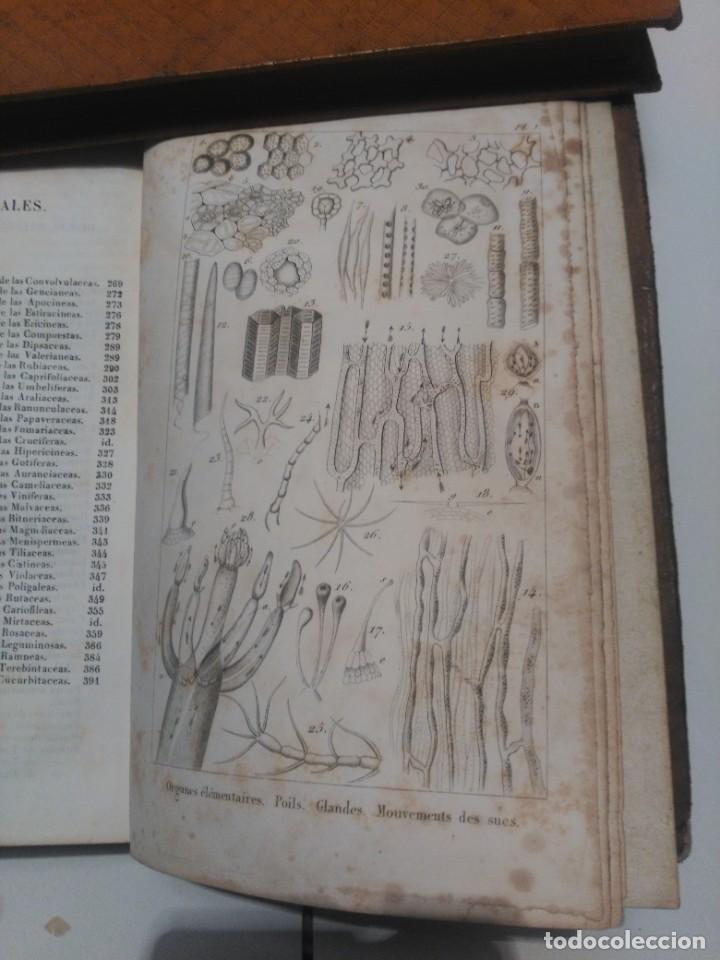 ALES.
de las Convolvulaceas. 269
de las Gencianeas. 272
de las Apocineas. 273
e las Estiracineas. 276
e las Ericineas. 278
e las Compuestas. 279
e las Dipsaceas. 289
e las Valerianeas. 289
e las Rubiaceas. 290
las Caprifoliaceas. 302
las Umbeliferas. 303
las Araliaceas. 313
las Ranunculaceas. 314
las Papaveraceas. 318
las Fumariaceas. 323
las Cruciferas. id.
las Hipericineas. 327
as Gutiferas. 328
as Auranciaceas. 330
as Cameliaceas. 332
s Viniferas. 333
s Malvaceas. 336
s Bitneriaceas. 339
s Magnoliaceas. 341
s Menispermeas. 343
s Tiliaceas. 344
s Cistineas. 345
s Violaceas. 347
Poligaleas. id.
Rutaceas. 349
Cariofileas. 355
Mirtaceas. id.
Rosaceas. 359
Leguminosas. 366
Ramneas. 384
Terebintaceas. 386
Cucurbitaceas. 391
Pl. 1
1. 2. 4. 3.
19. 30. 9.
7. 8. 11.
6. 20. 27.
12. 13. 15.
29.
22. 24.
23. 18.
28. 26.
16. 14.
17.
25.
Organes élémentaires. Poils. Glandes. Mouvements des sucs.
todocoleccion